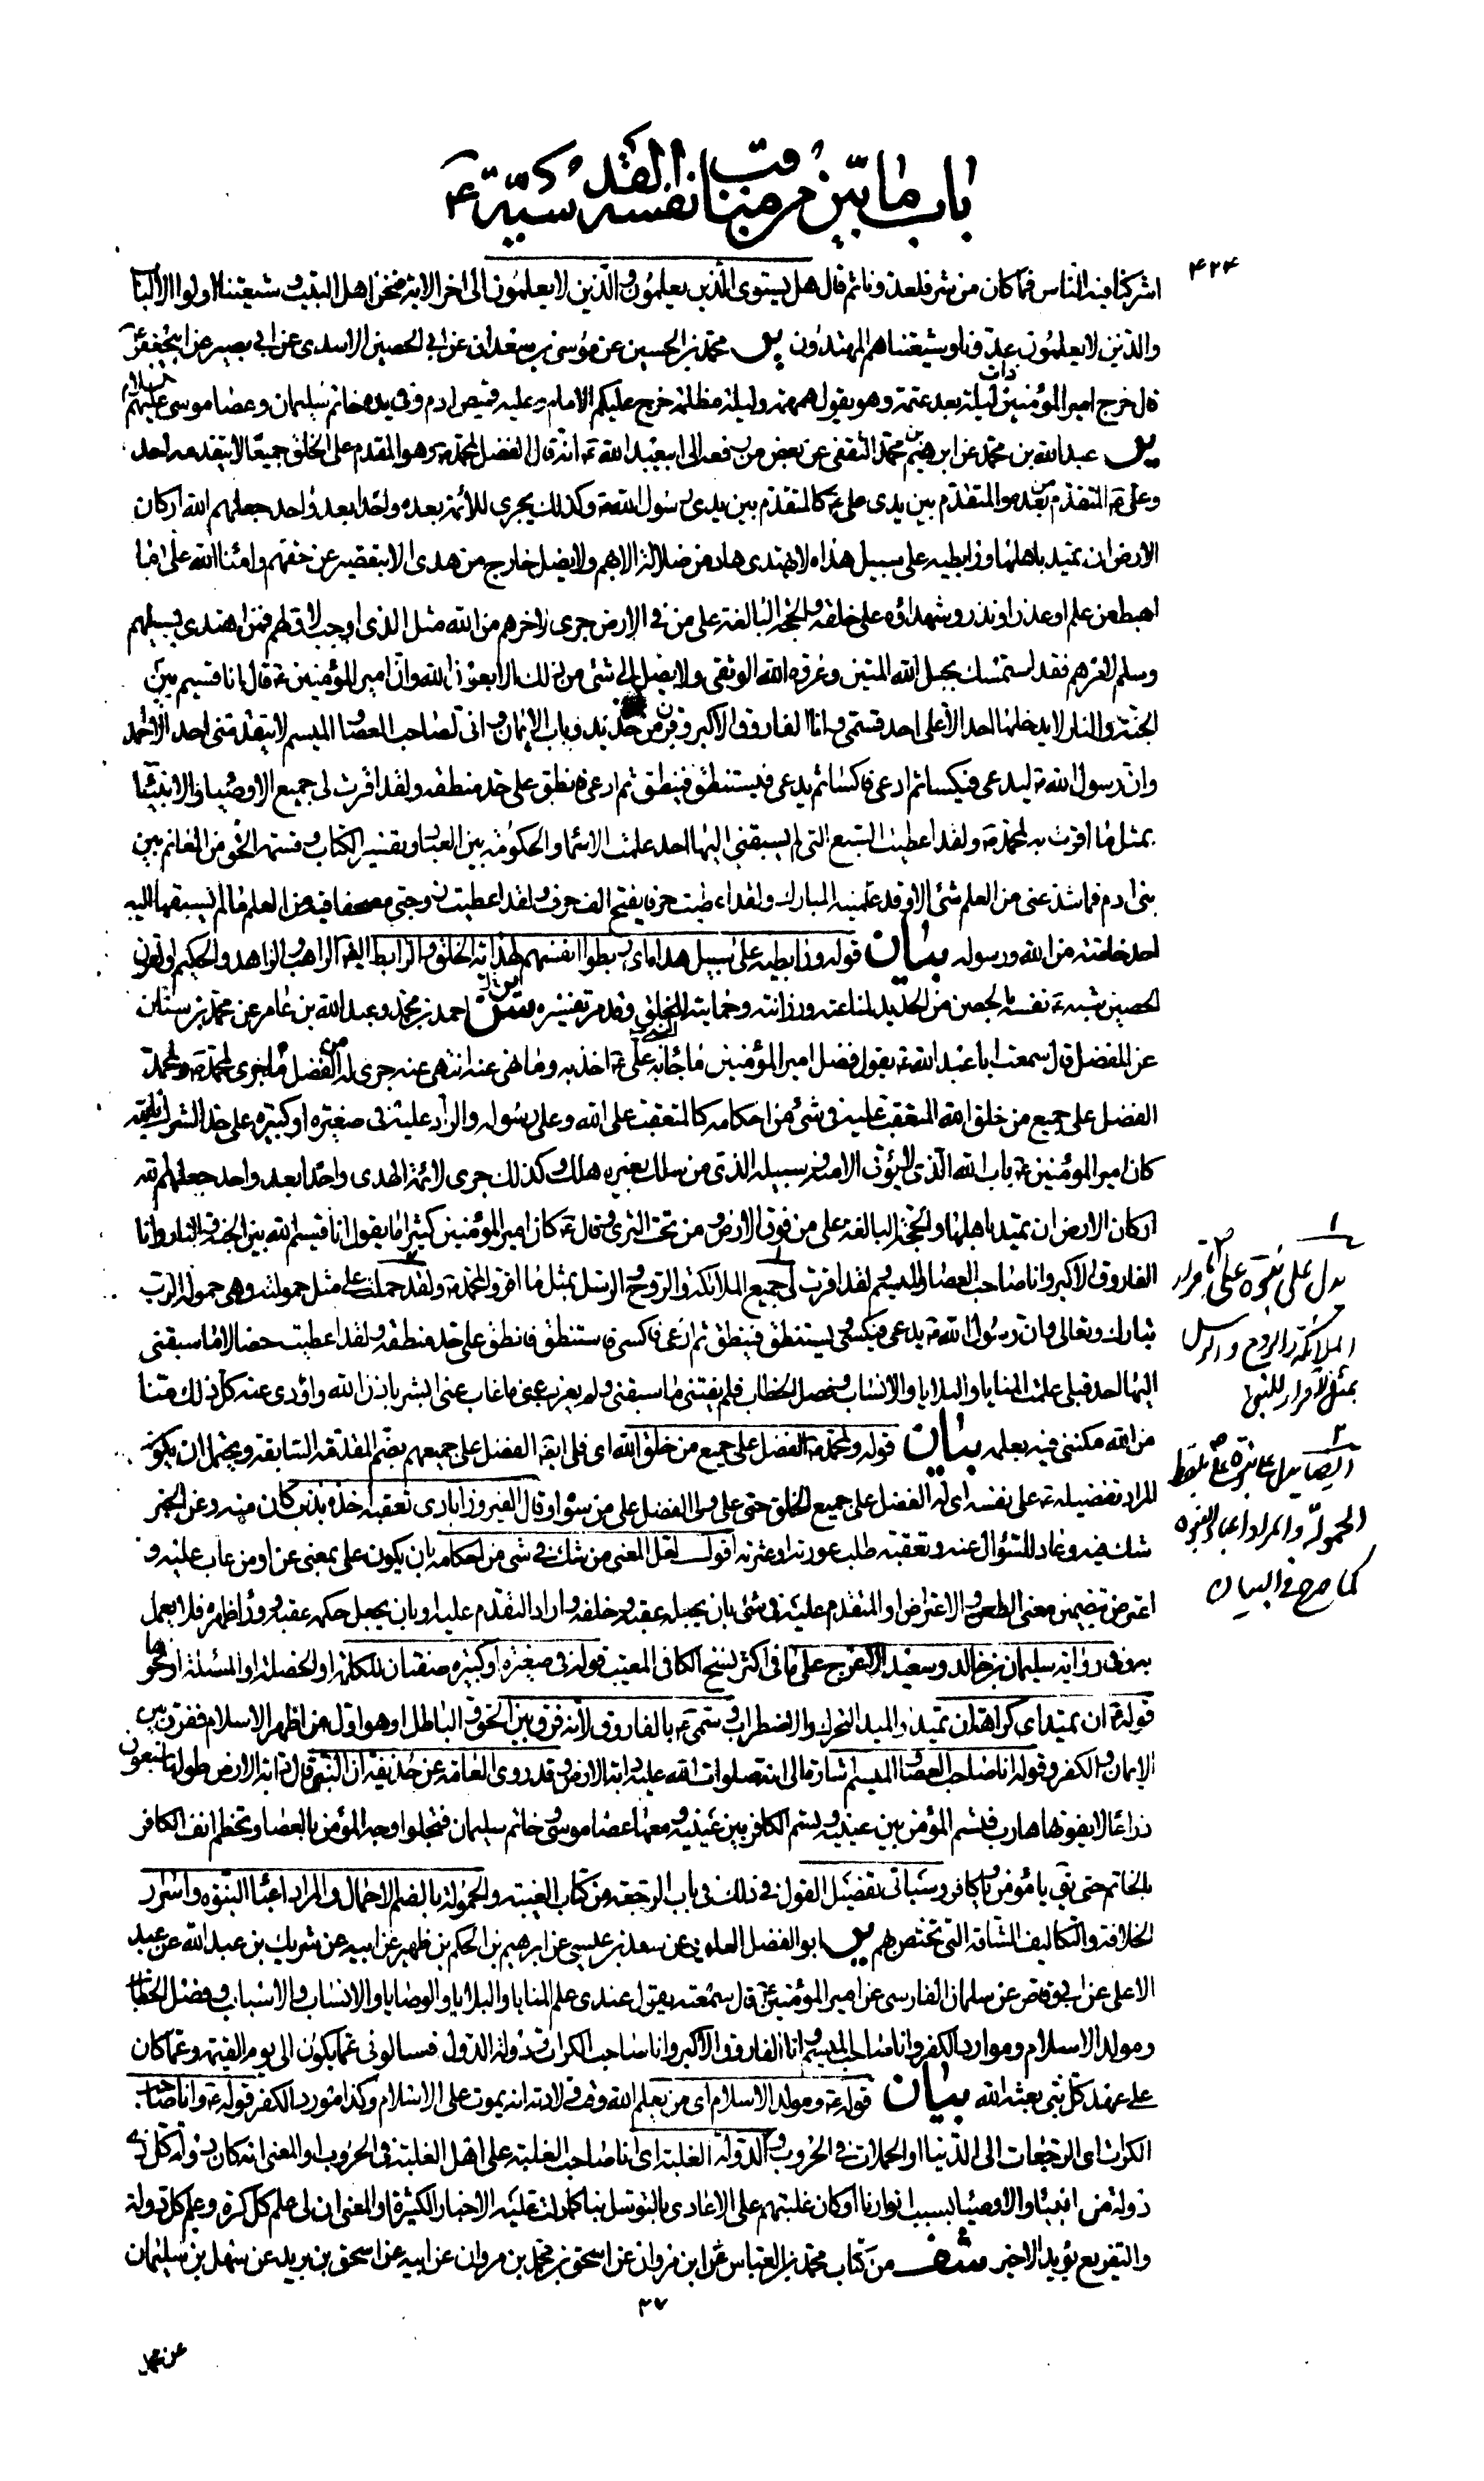 باب ما بين من مناقب نفسه القدسية ع
۴۲۴
اشركنا فيه الناس فما كان من شر فلعدونا ثم قال هل يستوى الذين يعلمون والذين لا يعلمون الى اخر الاية فنحن اهل البيت وشيعتنا اولوا الالباب
والذين لا يعلمون عدونا وشيعتنا هم المهتدون ير محمد بن الحسين عن موسى بن سعدان عن ابى الحصين الاسدى عن ابى بصير عن ابى جعفر ع
قال خرج امير المؤمنين ذات ليلة بعد عتمة وهو يقول همهمة وليلة مظلمة خرج عليكم الامام وعليه قميص ادم وفى يده خاتم سليمان وعصا موسى عليهم السلام
ير عبد الله بن محمد عن ابرهيم بن محمد الثقفى عن بعض من رفعه الى ابيعبد الله ع انه قال الفضل لمحمد ص وهو المقدم على الخلق جميعا لا يتقدمه احد
وعلى ع المتقدم من بعده والمتقدم بين يدى على ع كالمتقدم بين يدى رسول الله ص وكذلك يجرى للائمة بعده واحدا بعد واحد جعلهم الله اركان
الارض ان تميد باهلها ورابطيه على سبيل هداه لا يهتدى هاد من ضلالة الا بهم ولا يضل خارج من هدى الا بتقصير عن حقهم وامناء الله على ما
اهبط من علم او عذر او نذر وشهداؤه على خلقه والحجة البالغة على من فى الارض جرى لاخرهم من الله مثل الذى اوجب لاولهم فمن اهتدى بسبيلهم
وسلم لامرهم فقد استمسك بحبل الله المتين وعروة الله الوثقى ولا يصل الى شئ من ذلك الا بعون الله وان امير المؤمنين ع قال انا قسيم بين
الجنة والنار لا يدخلها احد الا على احد قسمى وانا الفاروق الاكبر وقرن من حديد وباب الايمان وانى لصاحب العصا والميسم لا يتقدمنى احد الا احمد
وان رسول الله ص ليدعى فيكسا ثم ادعى فاكسا ثم يدعى فيستنطق فينطق ثم ادعى فانطق على حد منطقه ولقد اقرت لى جميع الاوصياء والانبياء
بمثل ما اقرت به لمحمد ص ولقد اعطيت السبع التى لم يسبقنى اليها احد علمت الاسماء والحكومة بين العباد وتفسير الكتاب وقسمة الحق من المغانم بين
بنى ادم فما شذ عنى من العلم شئ الا وقد علمنيه المبارك ولقد اعطيت حرفا يفتح الف حرف ولقد اعطيت زوجتى مصحفا فيه من العلم ما لم يسبقها اليه
احد خاصة من الله ورسوله بيان قوله ورابطيه على سبيل هداه اى ربطوا انفسهم لهداية الخلق والرابط ايضا الراهب والزاهد والحكيم والقرن
الحصين شبه ع نفسه بالحصن من الحديد لمناعته ورزانته وحمايته للخلق وقد مر تفسيره احمد بن محمد وعبد الله بن عامر عن محمد بن سنان
عن المفضل قال سمعت ابا عبد الله ع يقول فضل امير المؤمنين ما جاء به على ع اخذ به وما نهى عنه انتهى عنه جرى له من الفضل ما جرى لمحمد ص ولمحمد
الفضل على جميع من خلق الله المتعقب عليه فى شئ من احكامه كالمتعقب على الله وعلى رسوله والراد عليه فى صغيرة او كبيرة على حد الشرك بالله
كان امير المؤمنين ع باب الله الذى لا يؤتى الا منه وسبيله الذى من سلك بغيره هلك وكذلك جرى لائمة الهدى واحدا بعد واحد جعلهم الله
اركان الارض ان تميد باهلها والحجة البالغة على من فوق الارض ومن تحت الثرى وقال ع كان امير المؤمنين كثيرا ما يقول انا قسيم الله بين الجنة والنار وانا
الفاروق الاكبر وانا صاحب العصا والميسم ولقد اقرت لى جميع الملائكة والروح والرسل بمثل ما اقروا لمحمد ص ولقد حملت على مثل حمولته وهى حمولة الرب
تبارك وتعالى وان رسول الله ص يدعى فيكسى ويستنطق فينطق ثم ادعى فاكسى فاستنطق فانطق على حد منطقه ولقد اعطيت خصالا ما سبقنى
اليها احد قبلى علمت المنايا والبلايا والانساب وفصل الخطاب فلم يفتنى ما سبقنى ولم يعزب عنى ما غاب عنى ابشر باذن الله واؤدى عنه كل ذلك منا
من الله مكننى فيه بعلمه بيان قوله ولمحمد ص الفضل على جميع من خلق الله اى فلى ايضا الفضل على جميعهم بضم المقدمة السابقة ويحتمل ان يكون
المراد تفضيله ع على نفسه اى له الفضل على جميع الخلق حتى على ولى الفضل على من سواه وقال الفيروزابادى تعقبه اخذه بذنب كان منه وعن الخبر
شك فيه وعاد للسؤال عنه وتعقبه طلب عورته او عثرته اقول لعل المعنى من شك فى شئ من احكامه بان يكون على بمعنى عن او من عاب عليه و
اعترض بتضمين معنى الطعن والاعتراض او المتقدم عليه فى شئ بان يجعله عقبه وخلفه واراد التقدم عليه او بان يجعل حكمه عقبه وراء ظهره فلا يعمل
به وفى رواية سليمان بن خالد وسعيد الاعرج على ما فى اكثر نسخ الكافى المعيب قوله فى صغيرة او كبيرة صفتان للكلمة او الخصلة او المسئلة او نحوها
قوله ع ان تميد اى كراهة ان تميد والميد التحرك والاضطراب وسمى ع بالفاروق لانه فرق بين الحق والباطل او هو اول من اظهر الاسلام ففرق بين
الايمان والكفر وقوله انا صاحب العصا والميسم اشارة الى انه صلوات الله عليه دابة الارض وقد روى العامة عن حذيفة ان النبى ص قال دابة الارض طولها سبعون
ذراعا لا يفوتها هارب فتسم المؤمن بين عينيه وتسم الكافر بين عينيه ومعها عصا موسى وخاتم سليمان فتجلوا وجه المؤمن بالعصا وتخطم انف الكافر
بالخاتم حتى يق يا مؤمن ويا كافر وسيأتى تفصيل القول فى ذلك فى باب الرجعة من كتاب الغيبة والحمولة بالضم الاحمال والمراد اعباء النبوة واسرار
الخلافة والتكاليف الشاقة التى تختص بهم ير ابو الفضل العلوى عن سعد بن عيسى عن ابرهيم بن الحكم بن ظهير عن ابيه عن شريك بن عبد الله عن عبد
الاعلى عن ابى وقاص عن سلمان الفارسى عن امير المؤمنين ع قال سمعته يقول عندى علم المنايا والبلايا والوصايا والانساب والاسباب وفصل الخطاب
ومولد الاسلام وموارد الكفر وانا صاحب الميسم وانا الفاروق الاكبر وانا صاحب الكرات ودولة الدول فسالونى عما يكون الى يوم القيمة وعما كان
على عهد كل نبى بعثه الله بيان قوله ع ومولد الاسلام اى من يعلم الله وقت ولادته انه يموت على الاسلام وكذا مورد الكفر قوله ع وانا صاحب
الكرات اى الرجعات الى الدنيا او الحملات فى الحروب والدولة الغلبة اى انا صاحب الغلبة على اهل الغلبة فى الحروب او المعنى انه كان دولة كل ذى
دولة من الانبياء والاوصياء بسبب انوارنا او كان غلبتهم على الاعادى بالتوسل بنا كما دلت عليه الاخبار الكثيرة او المعنى ان لى علم كل كرة وعلم كل دولة
والتفريع يؤيد الاخير شف من كتاب محمد بن العباس عن ابن مروان عن اسحق بن محمد بن مروان عن ابيه عن اسحق بن يزيد عن سهل بن سليمان
۱
يدل على نبوته على اقرار
الملائكة والروح والرسل
بمثل الاقرار للنبى
۲
ايضا يدل على نبوته
الحمولة والمراد اعباء النبوة
كما صرح فى البيان
۳۷
عن محمد